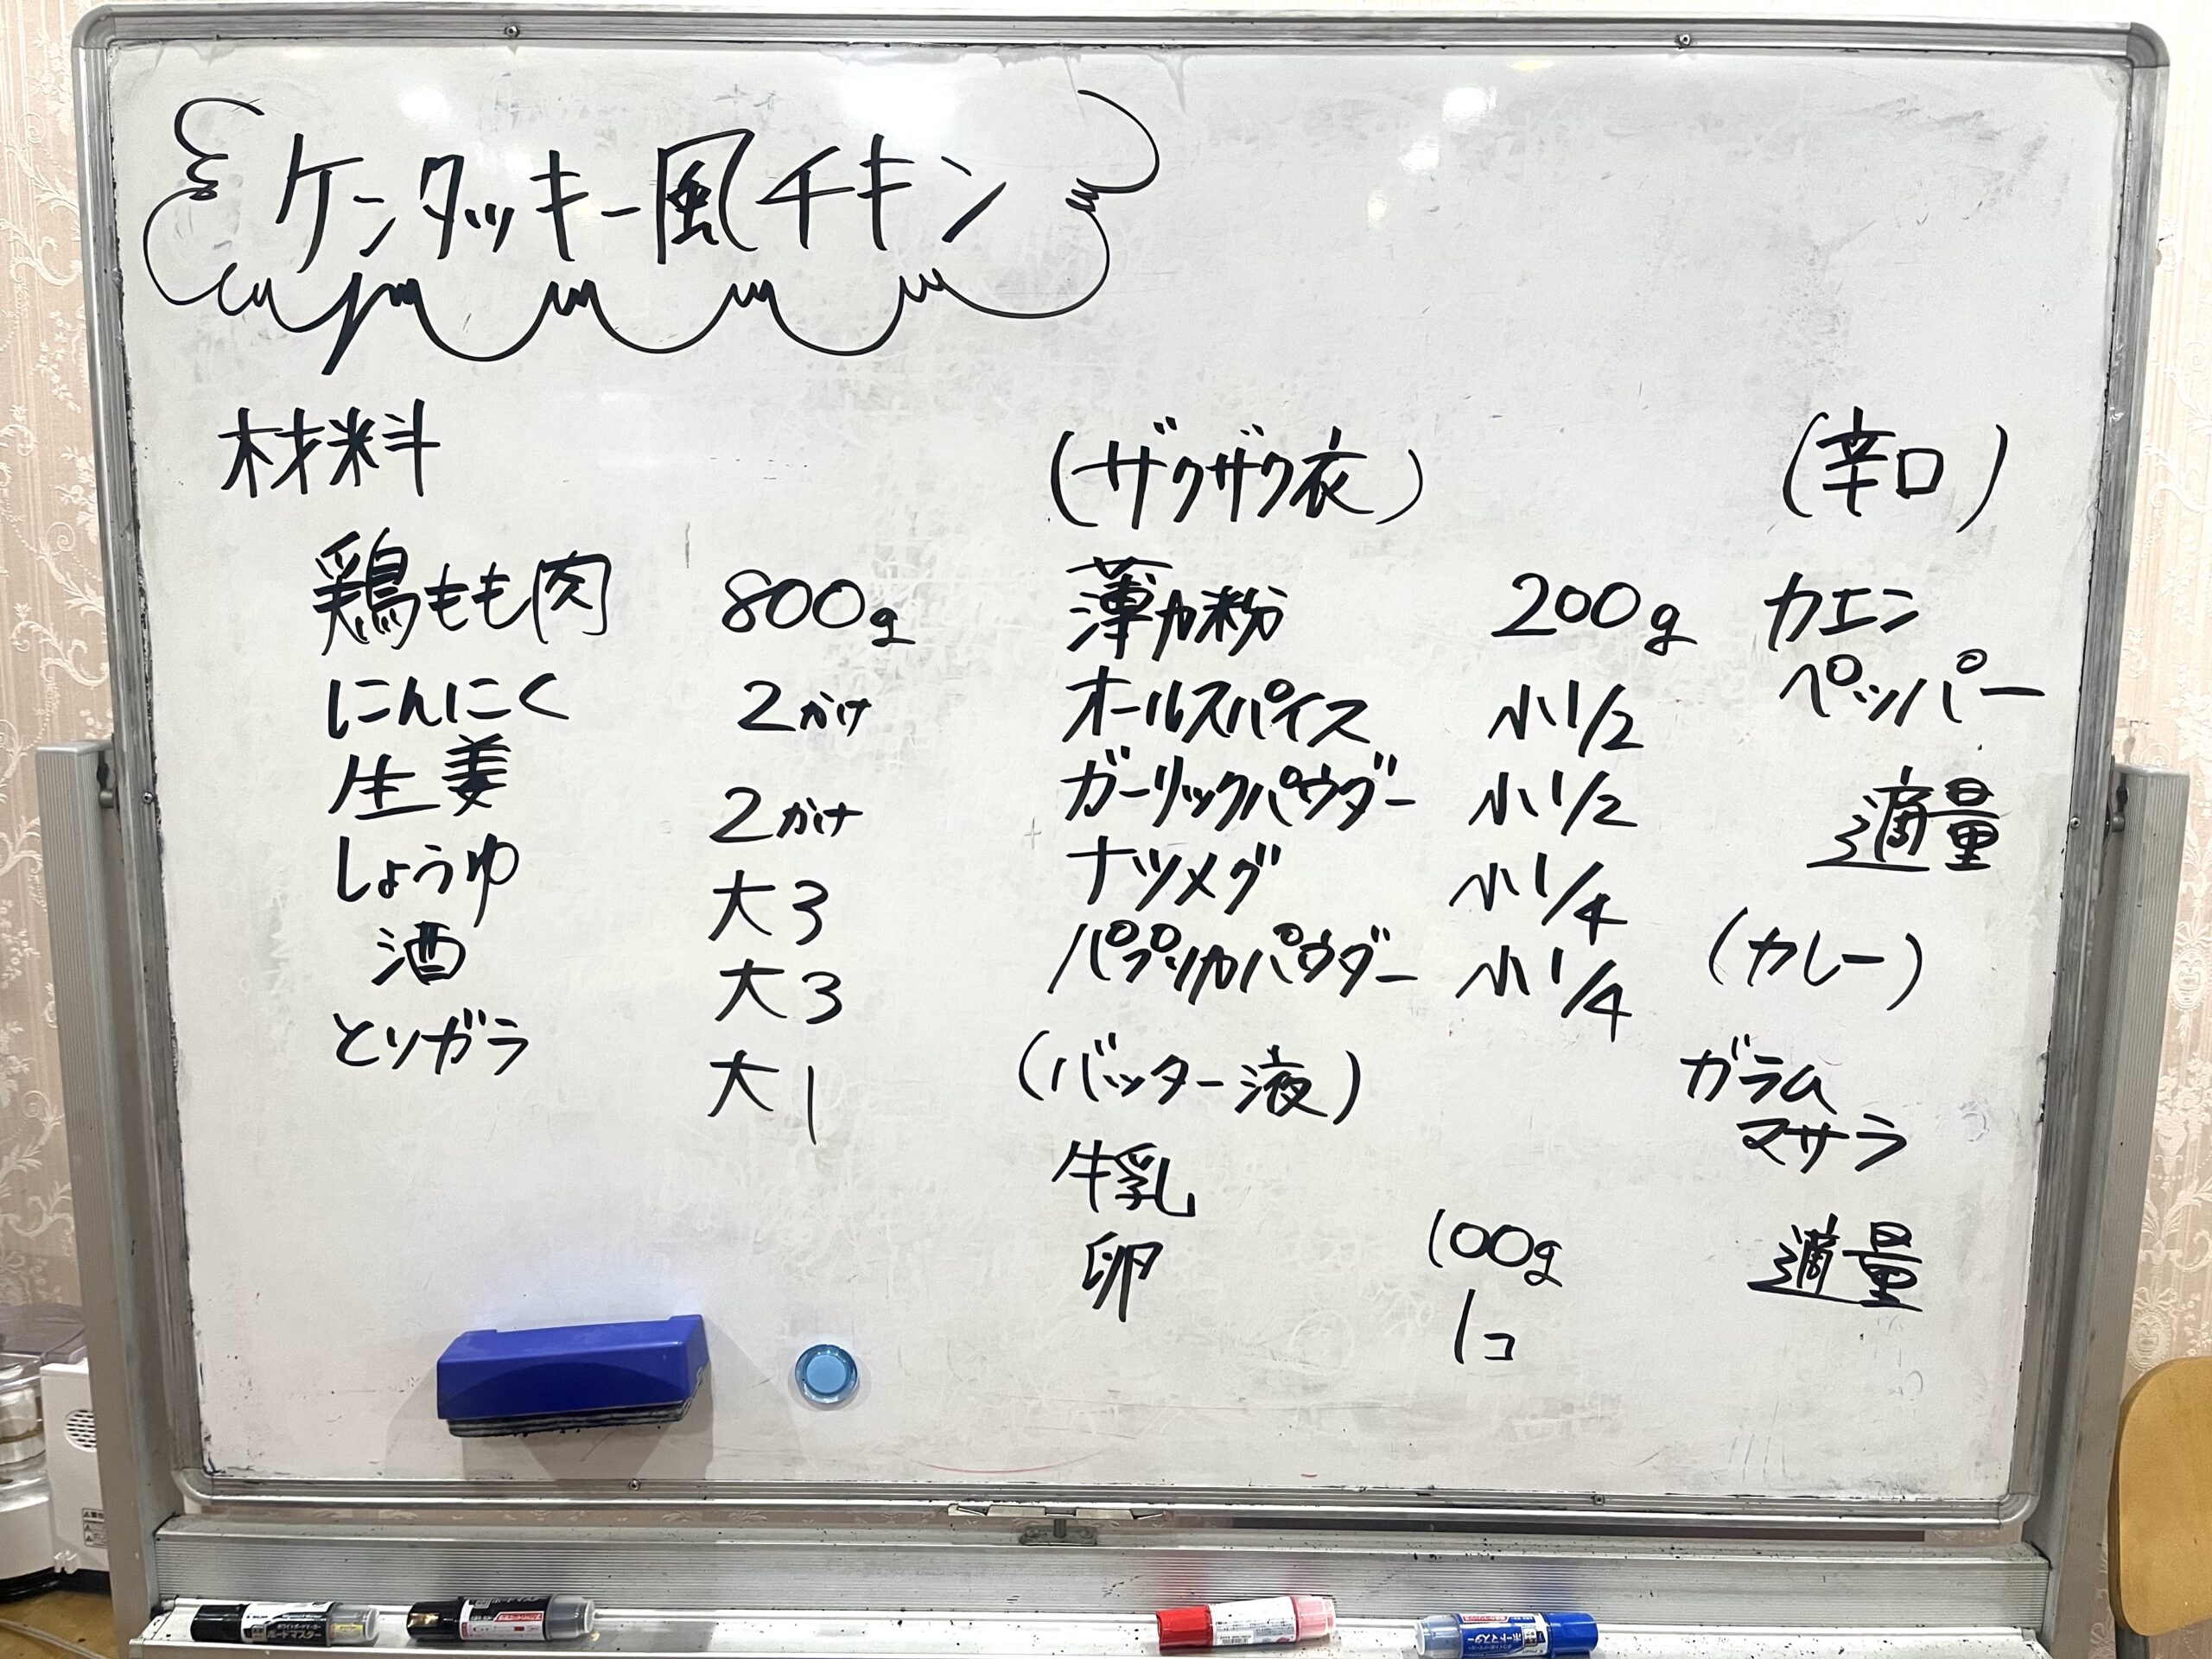 ケンタッキー風チキン
材料
鶏もも肉 800g
にんにく 2かけ
生姜 2かけ
しょうゆ 大3
酒 大3
とりガラ 大1
(ザクザク衣)
薄力粉 200g
オールスパイス 小1/2
ガーリックパウダー 小1/2
ナツメグ 小1/4
パプリカパウダー 小1/4
(バッター液)
牛乳 100g
卵 1コ
(辛口)
カエン
ペッパー
適量
(カレー)
ガラム
マサラ
適量
ボードマスター
ボードマスター